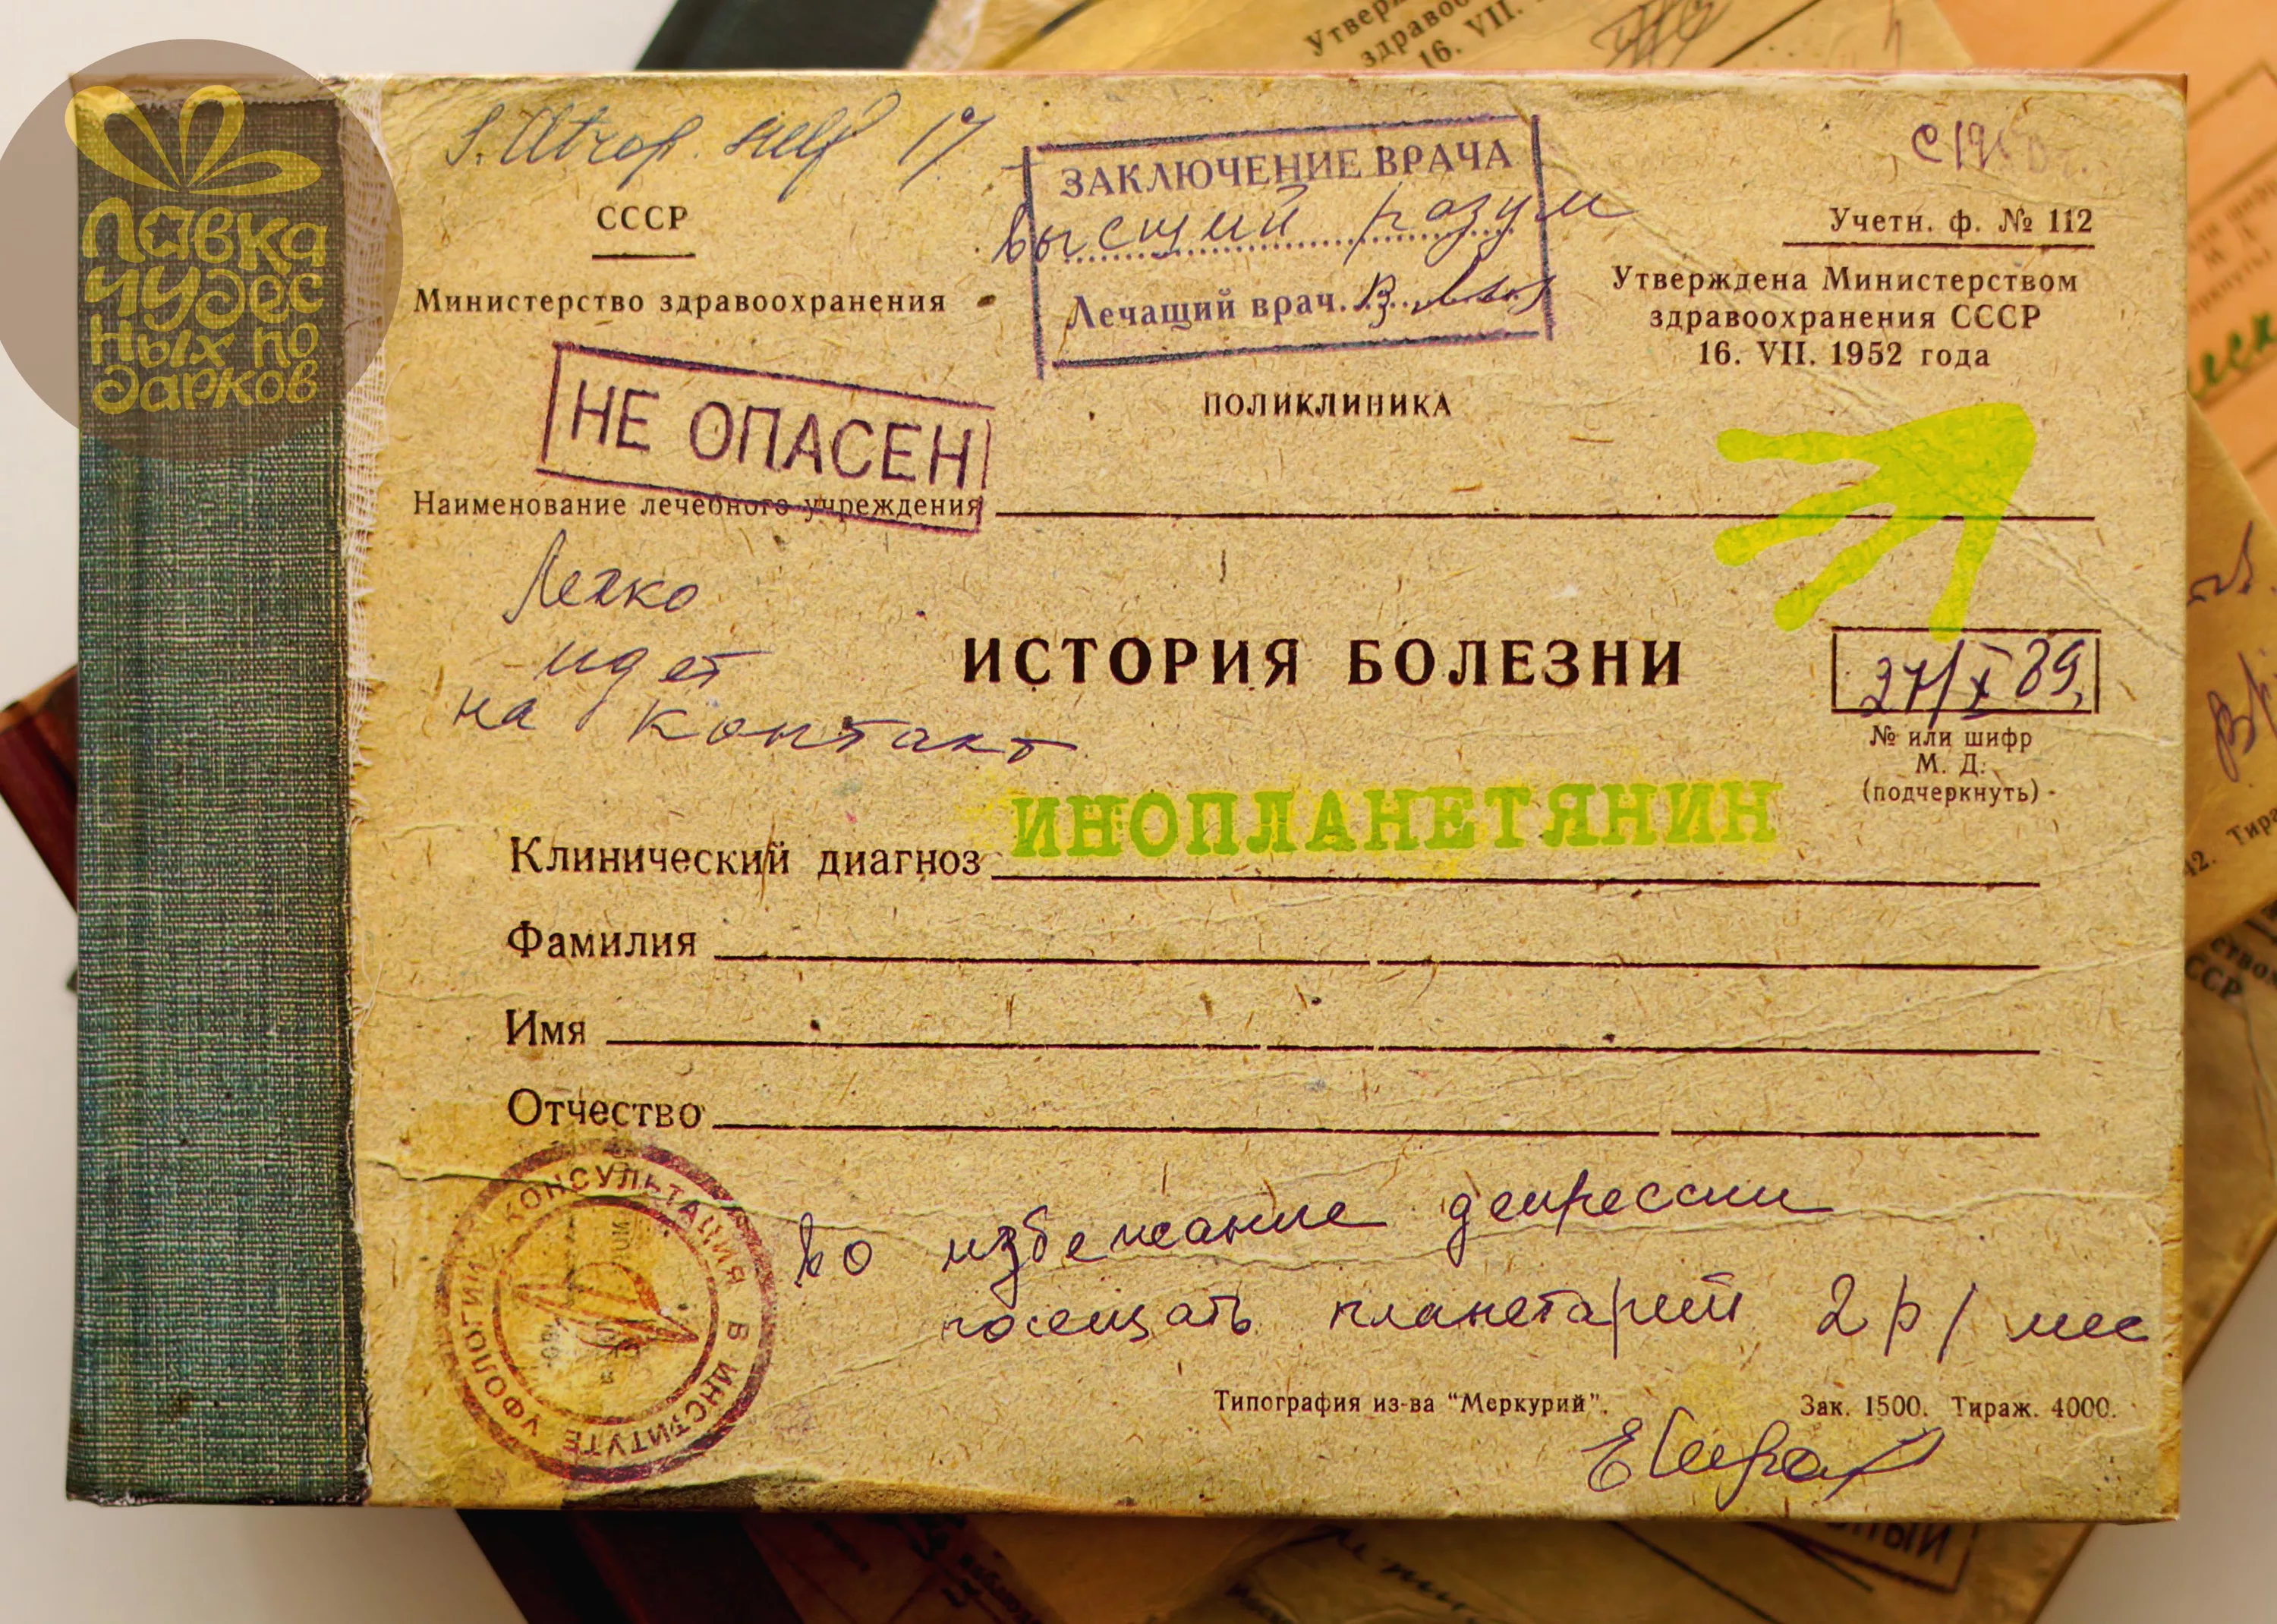 Лавка
чудес
ных по
дарков
S. Atrop. sulf 1%
СССР
Министерство здравоохранения
ЗАКЛЮЧЕНИЕ ВРАЧА
Высший разум
Лечащий врач.
Учетн. ф. № 112
Утверждена Министерством
здравоохранения СССР
16. VII. 1952 года
ПОЛИКЛИНИКА
НЕ ОПАСЕН
Наименование лечебного учреждения
Легко
идет
на контакт
ИСТОРИЯ БОЛЕЗНИ
27/X 89
№ или шифр
М. Д.
(подчеркнуть)
Клинический диагноз ИНОПЛАНЕТЯНИН
Фамилия
Имя
Отчество
КОНСУЛЬТАЦИЯ В ИНСТИТУТЕ УФОЛОГИИ
Во избежание депрессии
посещать планетарий 2 р/мес
Типография из-ва "Меркурий".
Зак. 1500. Тираж. 4000.